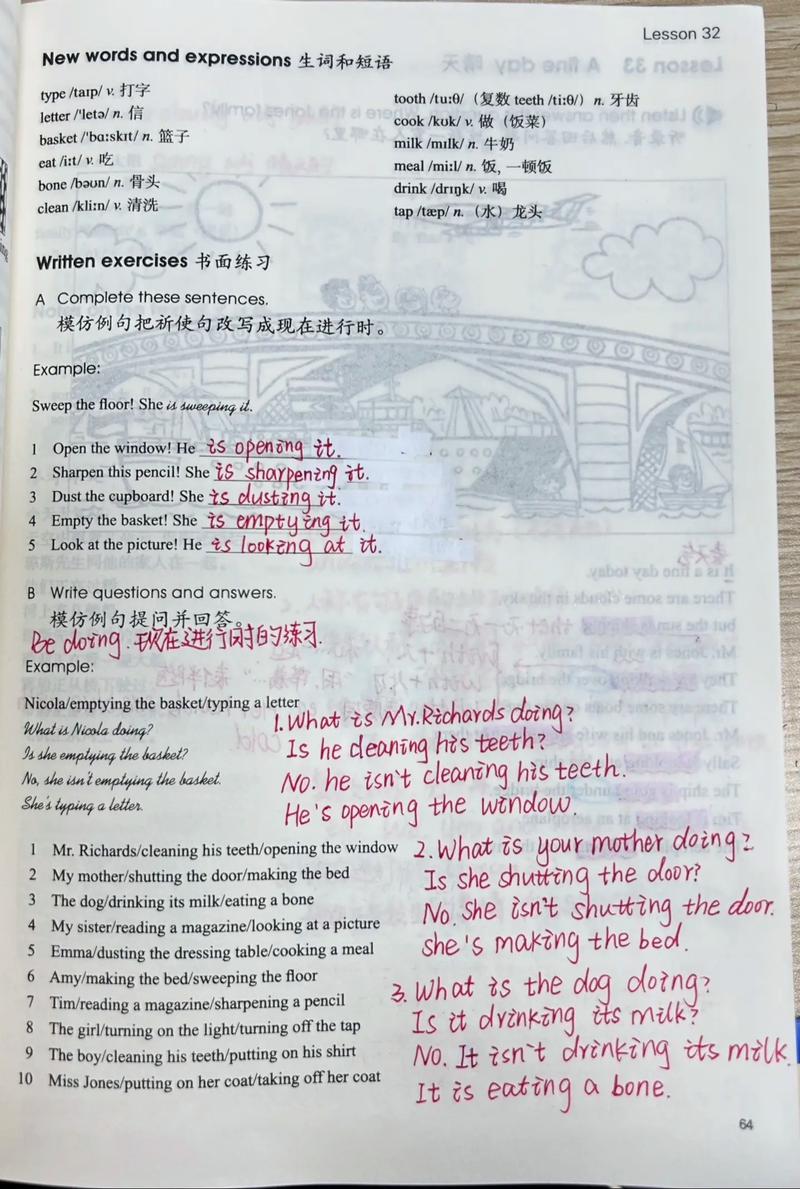 Lesson 32
New words and expressions 生词和短语
type /taɪp/ v. 打字
letter /ˈletə/ n. 信
basket /ˈbɑːskɪt/ n. 篮子
eat /iːt/ v. 吃
bone /bəʊn/ n. 骨头
clean /kliːn/ v. 清洗
tooth /tuːθ/（复数 teeth /tiːθ/）n. 牙齿
cook /kʊk/ v. 做（饭菜）
milk /mɪlk/ n. 牛奶
meal /miːl/ n. 饭, 一顿饭
drink /drɪŋk/ v. 喝
tap /tæp/ n.（水）龙头
Written exercises 书面练习
A Complete these sentences.
模仿例句把祈使句改写成现在进行时。
Example:
Sweep the floor! She is sweeping it.
1 Open the window! He is opening it.
2 Sharpen this pencil! She is sharpening it.
3 Dust the cupboard! She is dusting it.
4 Empty the basket! She is emptying it.
5 Look at the picture! He is looking at it.
B Write questions and answers.
模仿例句提问并回答。
Be doing. 现在进行时的练习.
Example:
Nicola/emptying the basket/typing a letter
What is Nicola doing?
Is she emptying the basket?
No, she isn't emptying the basket.
She's typing a letter.
1 Mr. Richards/cleaning his teeth/opening the window
2 My mother/shutting the door/making the bed
3 The dog/drinking its milk/eating a bone
4 My sister/reading a magazine/looking at a picture
5 Emma/dusting the dressing table/cooking a meal
6 Amy/making the bed/sweeping the floor
7 Tim/reading a magazine/sharpening a pencil
8 The girl/turning on the light/turning off the tap
9 The boy/cleaning his teeth/putting on his shirt
10 Miss Jones/putting on her coat/taking off her coat
1. What is Mr. Richards doing?
Is he cleaning his teeth?
No. he isn't cleaning his teeth.
He's opening the window.
2. What is your mother doing?
Is she shutting the door?
No. she isn't shutting the door.
she's making the bed.
3. What is the dog doing?
Is it drinking its milk?
No. It isn't drinking its milk.
It is eating a bone.
64